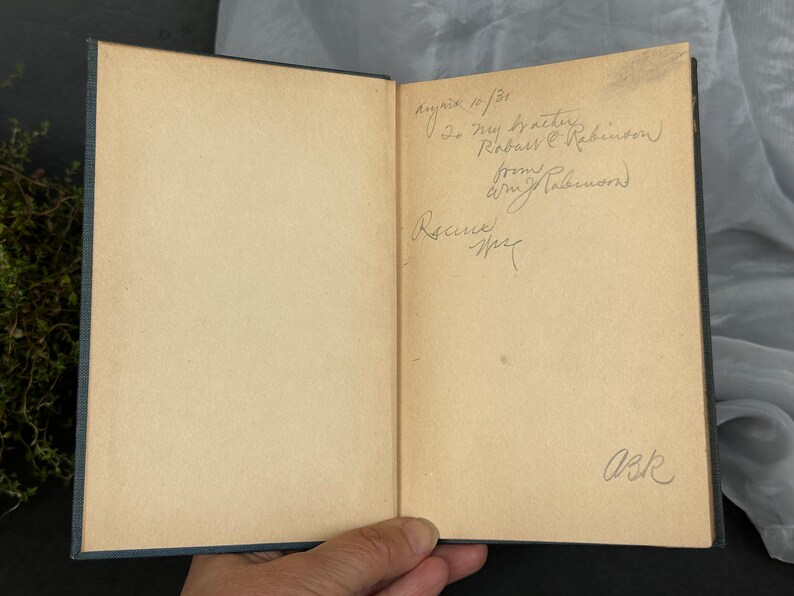 August 10/31
To My brother
Robert C Robinson
from
Wm J Robinson
Racine
Wis
ABR